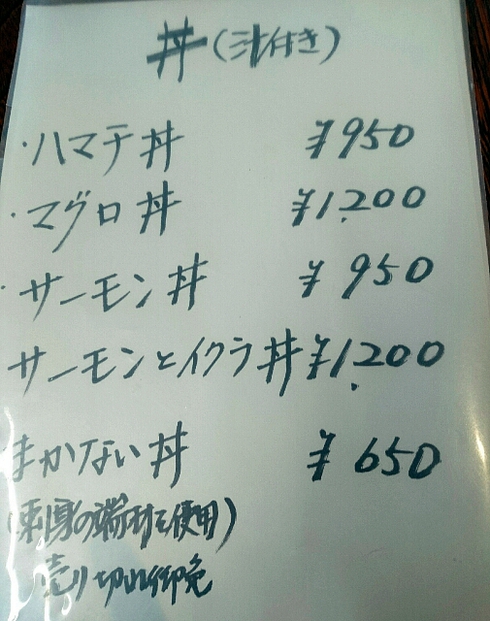 丼(汁付き)
・ハマチ丼 ¥950
・マグロ丼 ¥1,200
・サーモン丼 ¥950
サーモンとイクラ丼 ¥1,200
まかない丼 ¥650
(刺身の端材を使用)
売り切れ御免